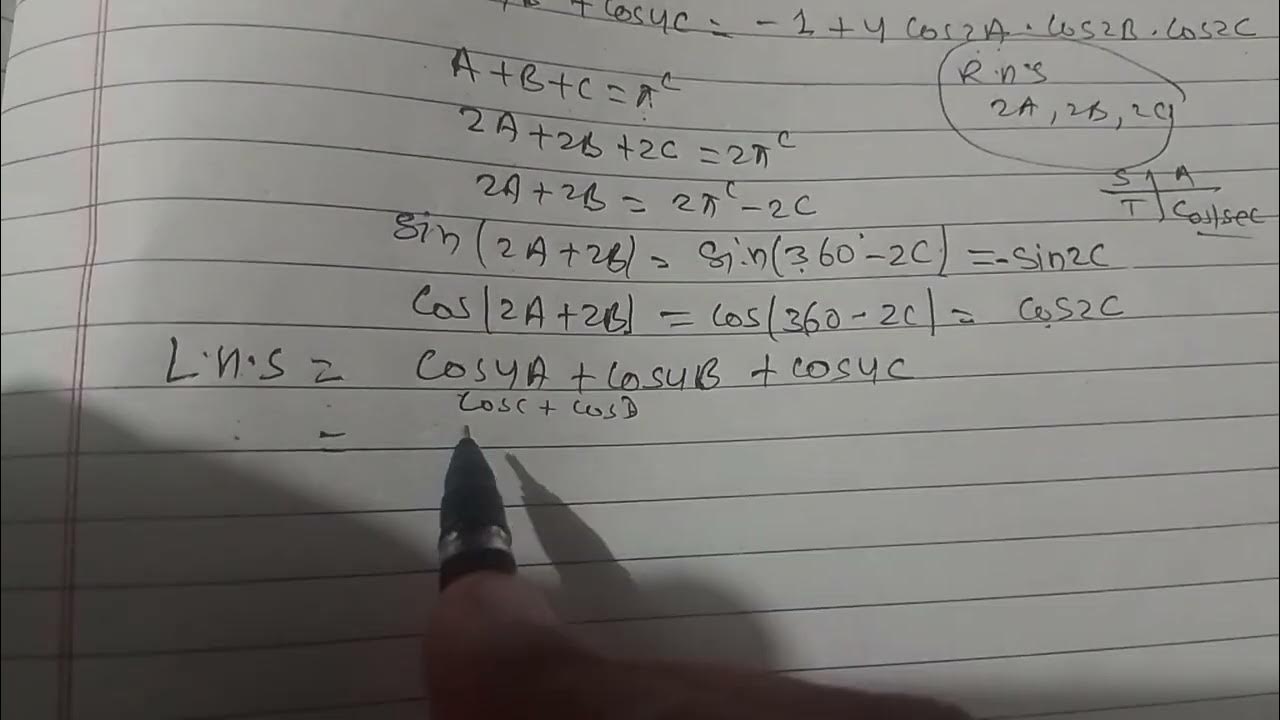 + cos4C = - 1 + 4 cos2A · cos2B · cos2C
A + B + C = π^c
R.H.S
2A, 2B, 2C
2A + 2B + 2C = 2π^c
2A + 2B = 2π^c - 2C
S | A
T | Cos/sec
sin(2A + 2B) = sin(360° - 2C) = -sin2C
cos(2A + 2B) = cos(360 - 2C) = cos2C
L.H.S = cos4A + cos4B + cos4C
cosC + cosD
=